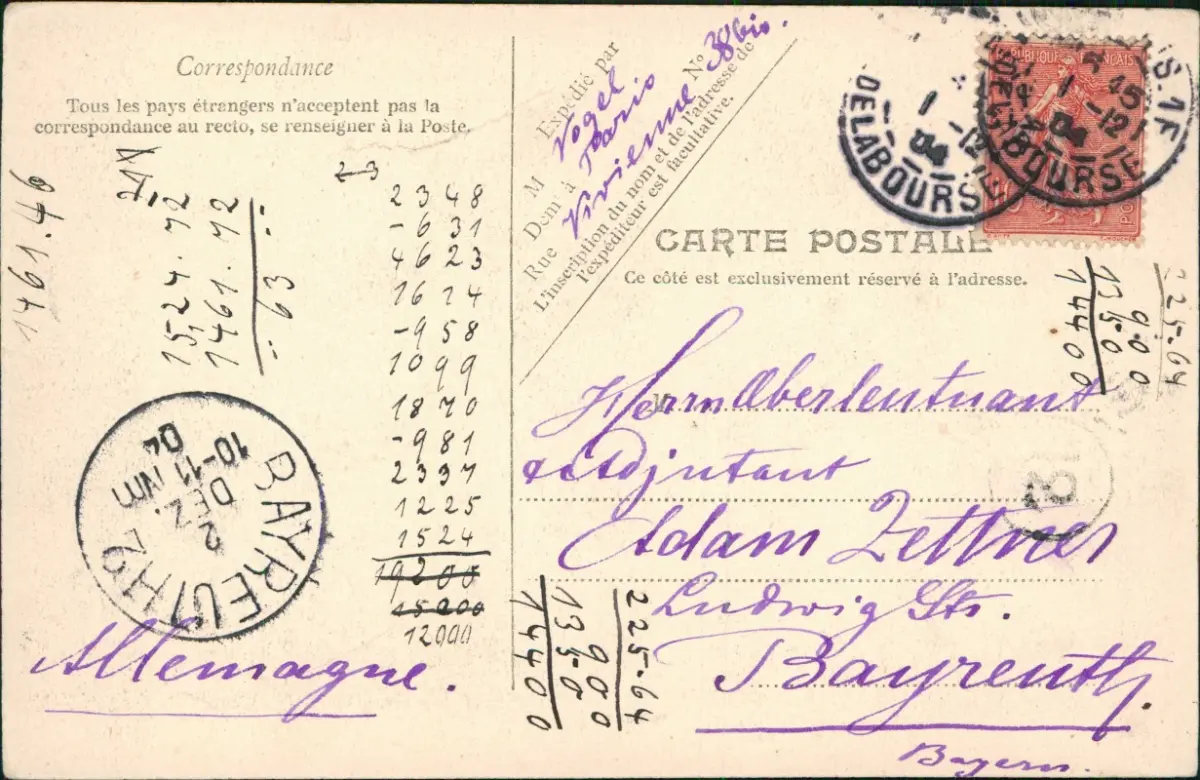 Correspondance
Tous les pays étrangers n'acceptent pas la
correspondance au recto, se renseigner à la Poste.
Expédié par
M Vogel
Demt à Paris
Rue Vivienne No 38bis.
L'inscription du nom et de l'adresse de
l'expéditeur est facultative.
RÉPUBLIQUE FRANÇAISE
1 -12
04
DE LA BOURSE
1 -12
04
DE LA BOURSE
CARTE POSTALE
Ce côté est exclusivement réservé à l'adresse.
Herrn Oberleutnant
Adjutant
Adam Zettner
Ludwig Str.
Bayreuth.
Bayern.
Allemagne.
BAYREUTH 2
2
DEZ.
10-11 NM
04
1461.46
1524.72
1461.72
63
23
2348
-631
4623
1614
-958
1099
1870
-981
2397
1225
1524
19200
15200
12000
225-64
900
135-0
14400
225-64
900
135-0
14400